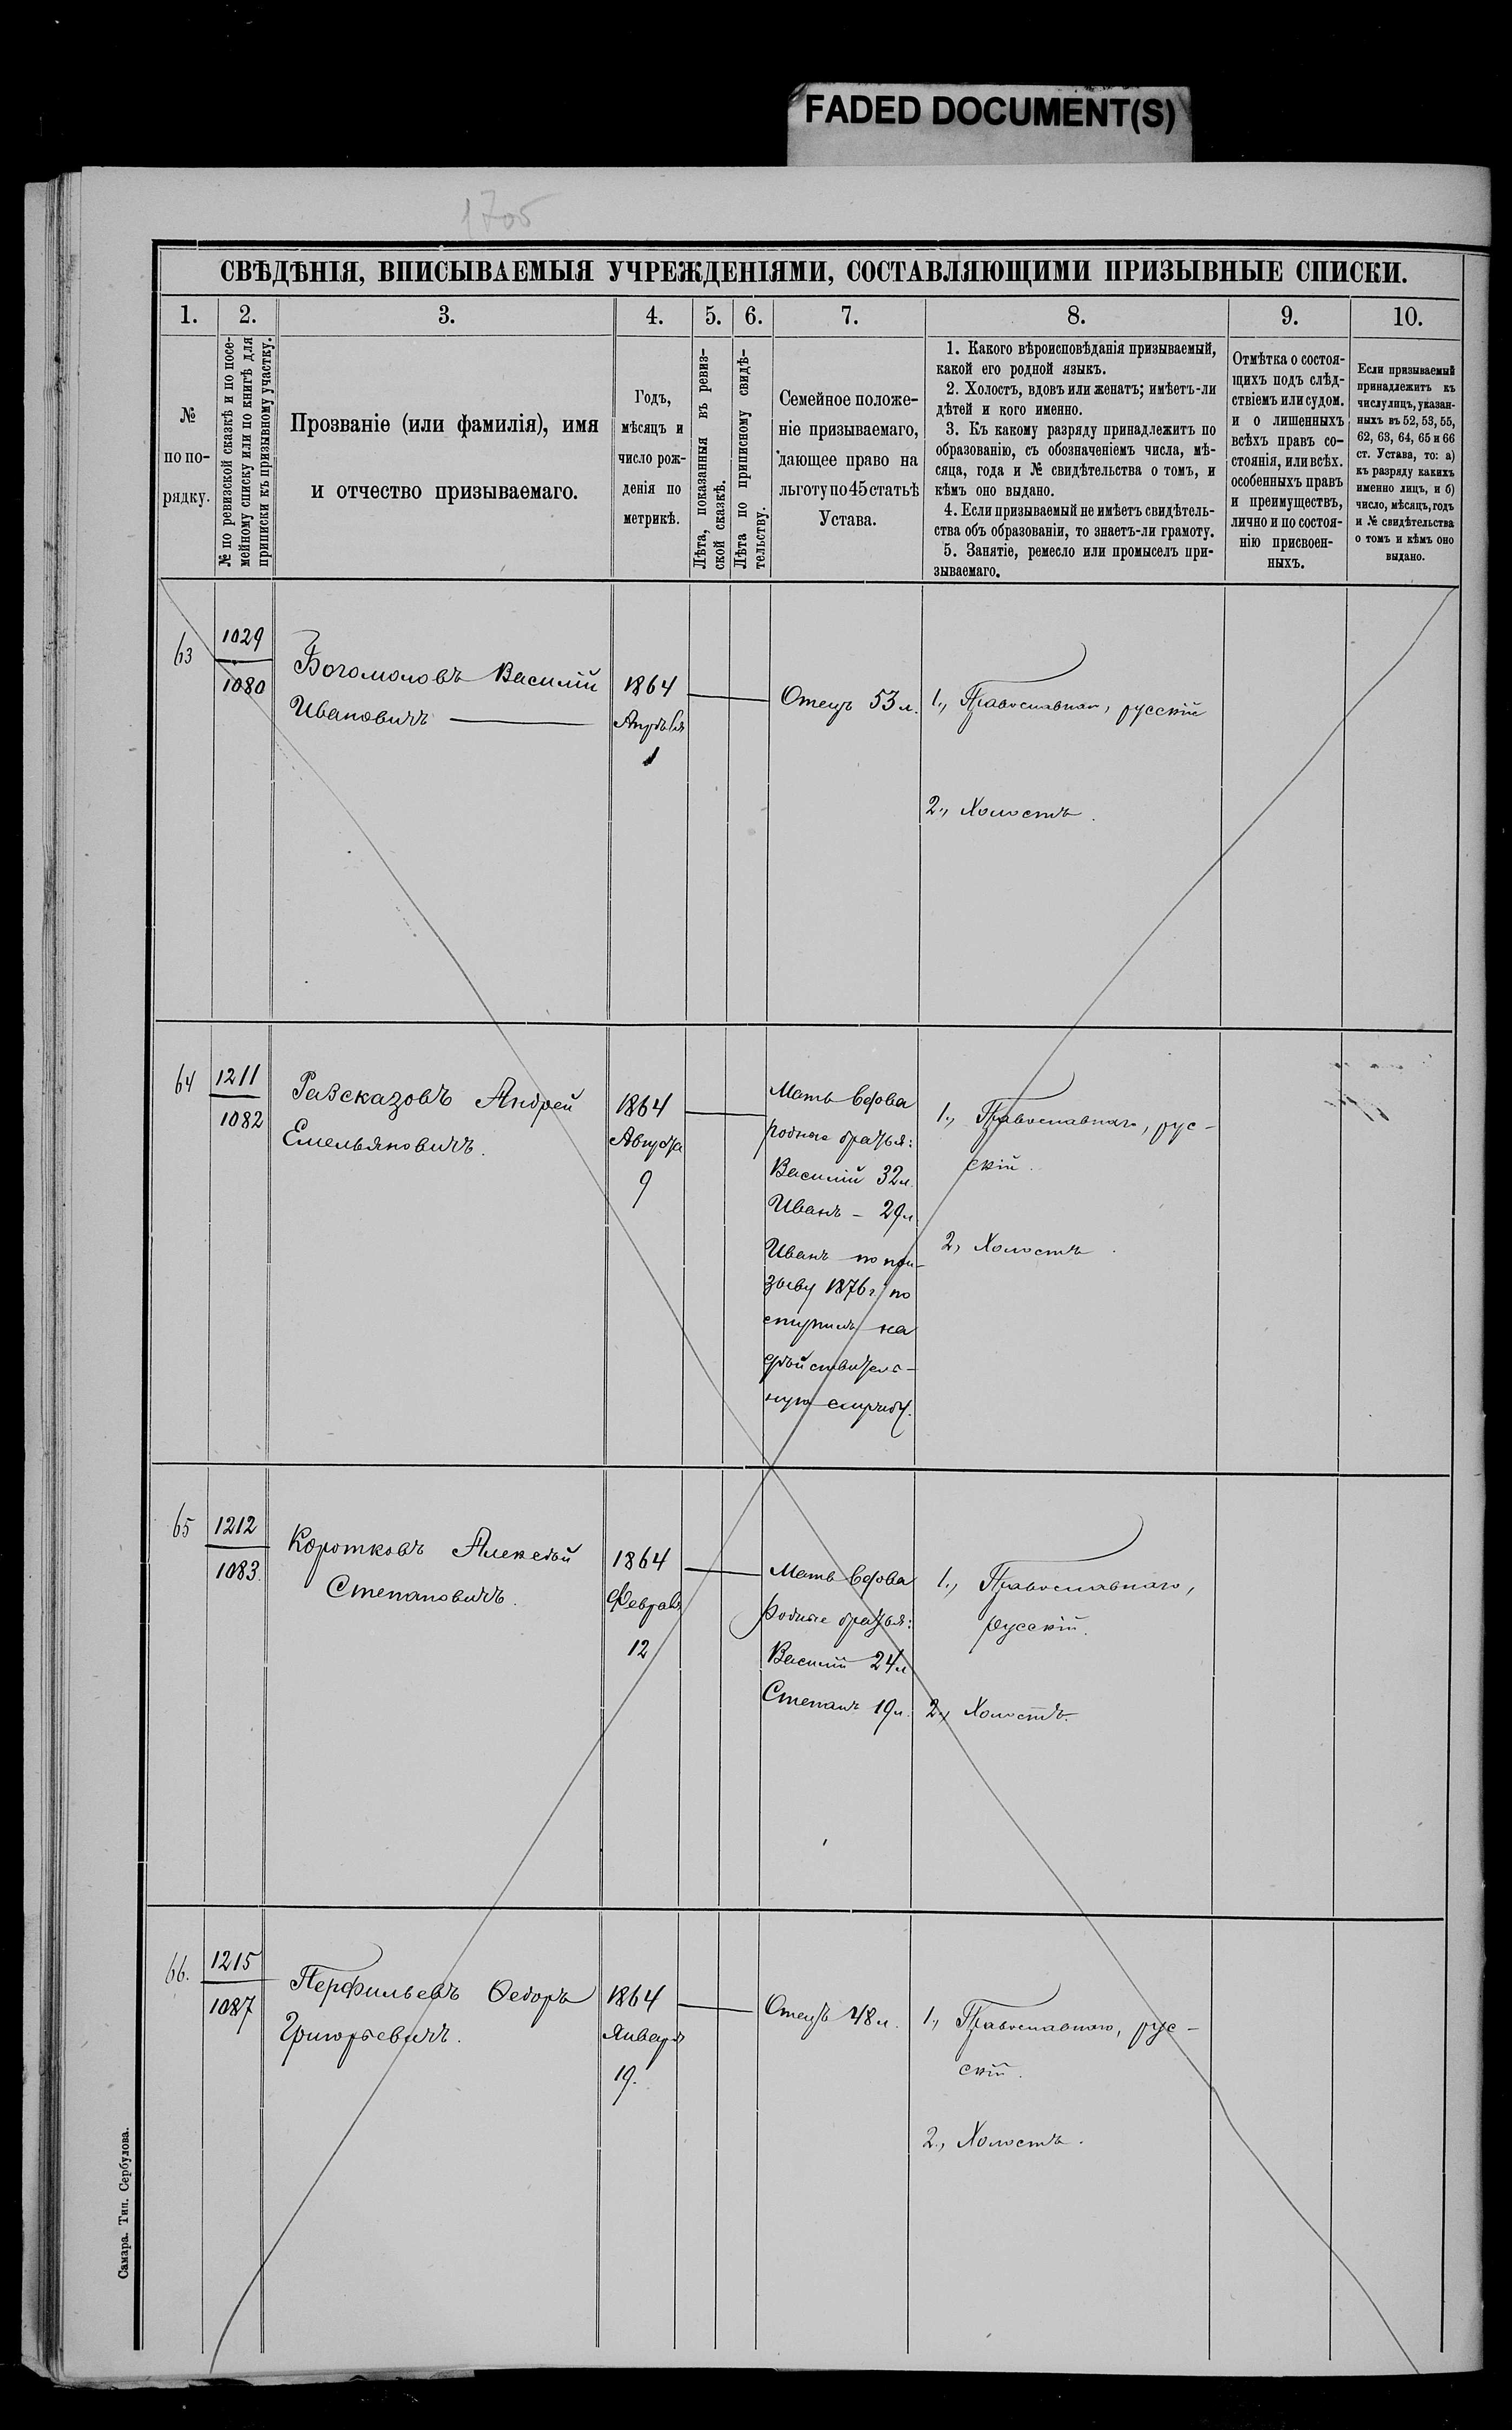 FADED DOCUMENT(S)
1705
СВѢДѢНІЯ, ВПИСЫВАЕМЫЯ УЧРЕЖДЕНІЯМИ, СОСТАВЛЯЮЩИМИ ПРИЗЫВНЫЕ СПИСКИ.
1.
2.
3.
4.
5.
6.
7.
8.
9.
10.
№
по по-
рядку.
№ по ревизской сказкѣ и по посе-
мейному списку или по книгѣ для
приписки къ призывному участку.
Прозваніе (или фамилія), имя
и отчество призываемаго.
Годъ,
мѣсяцъ и
число рож-
денія по
метрикѣ.
Лѣта, показанныя въ ревиз-
ской сказкѣ.
Лѣта по приписному свидѣ-
тельству.
Семейное положе-
ніе призываемаго,
дающее право на
льготу по 45 статьѣ
Устава.
1. Какого вѣроисповѣданія призываемый,
какой его родной языкъ.
2. Холостъ, вдовъ или женатъ; имѣетъ-ли
дѣтей и кого именно.
3. Къ какому разряду принадлежитъ по
образованію, съ обозначеніемъ числа, мѣ-
сяца, года и № свидѣтельства о томъ, и
кѣмъ оно выдано.
4. Если призываемый не имѣетъ свидѣтель-
ства объ образованіи, то знаетъ-ли грамоту.
5. Занятіе, ремесло или промыселъ при-
зываемаго.
Отмѣтка о состоя-
щихъ подъ слѣд-
ствіемъ или судом.
и о лишенныхъ
всѣхъ правъ со-
стоянія, или всѣх.
особенныхъ правъ
и преимуществъ,
лично и по состоя-
нію присвоен-
ныхъ.
Если призываемый
принадлежитъ къ
числу лицъ, указан-
ныхъ въ 52, 53, 55,
62, 63, 64, 65 и 66
ст. Устава, то: а)
къ разряду какихъ
именно лицъ, и б)
число, мѣсяцъ, годъ
и № свидѣтельства
о томъ и кѣмъ оно
выдано.
63
1029
1080
Богомоловъ Василій
Ивановичъ
1864
Апрѣля
1
Отецъ 53 л.
1., Православнаго, русскій
2., Холостъ.
64
1211
1082
Разсказовъ Андрей
Емельяновичъ.
1864
Августа
9
Мать вдова
родные братья:
Василій 32 л.
Иванъ – 29 л
Иванъ по при-
зыву 1876 г. по
ступилъ на
дѣйствитель-
ную службу.
1., Православнаго, рус-
скій.
2, Холостъ.
65
1212
1083.
Коротковъ Алексѣй
Степановичъ.
1864
Февраля
12
Мать вдова
родные братья:
Василій 24 л
Степанъ 19 л.
1., Православнаго,
русскій.
2., Холостъ.
66.
1215
1087
Перфильевъ Ѳедоръ
Григорьевичъ.
1864
Января
19.
Отецъ 48 л.
1., Православнаго, рус-
скій.
2., Холостъ.
Самара. Тип. Сербулова.